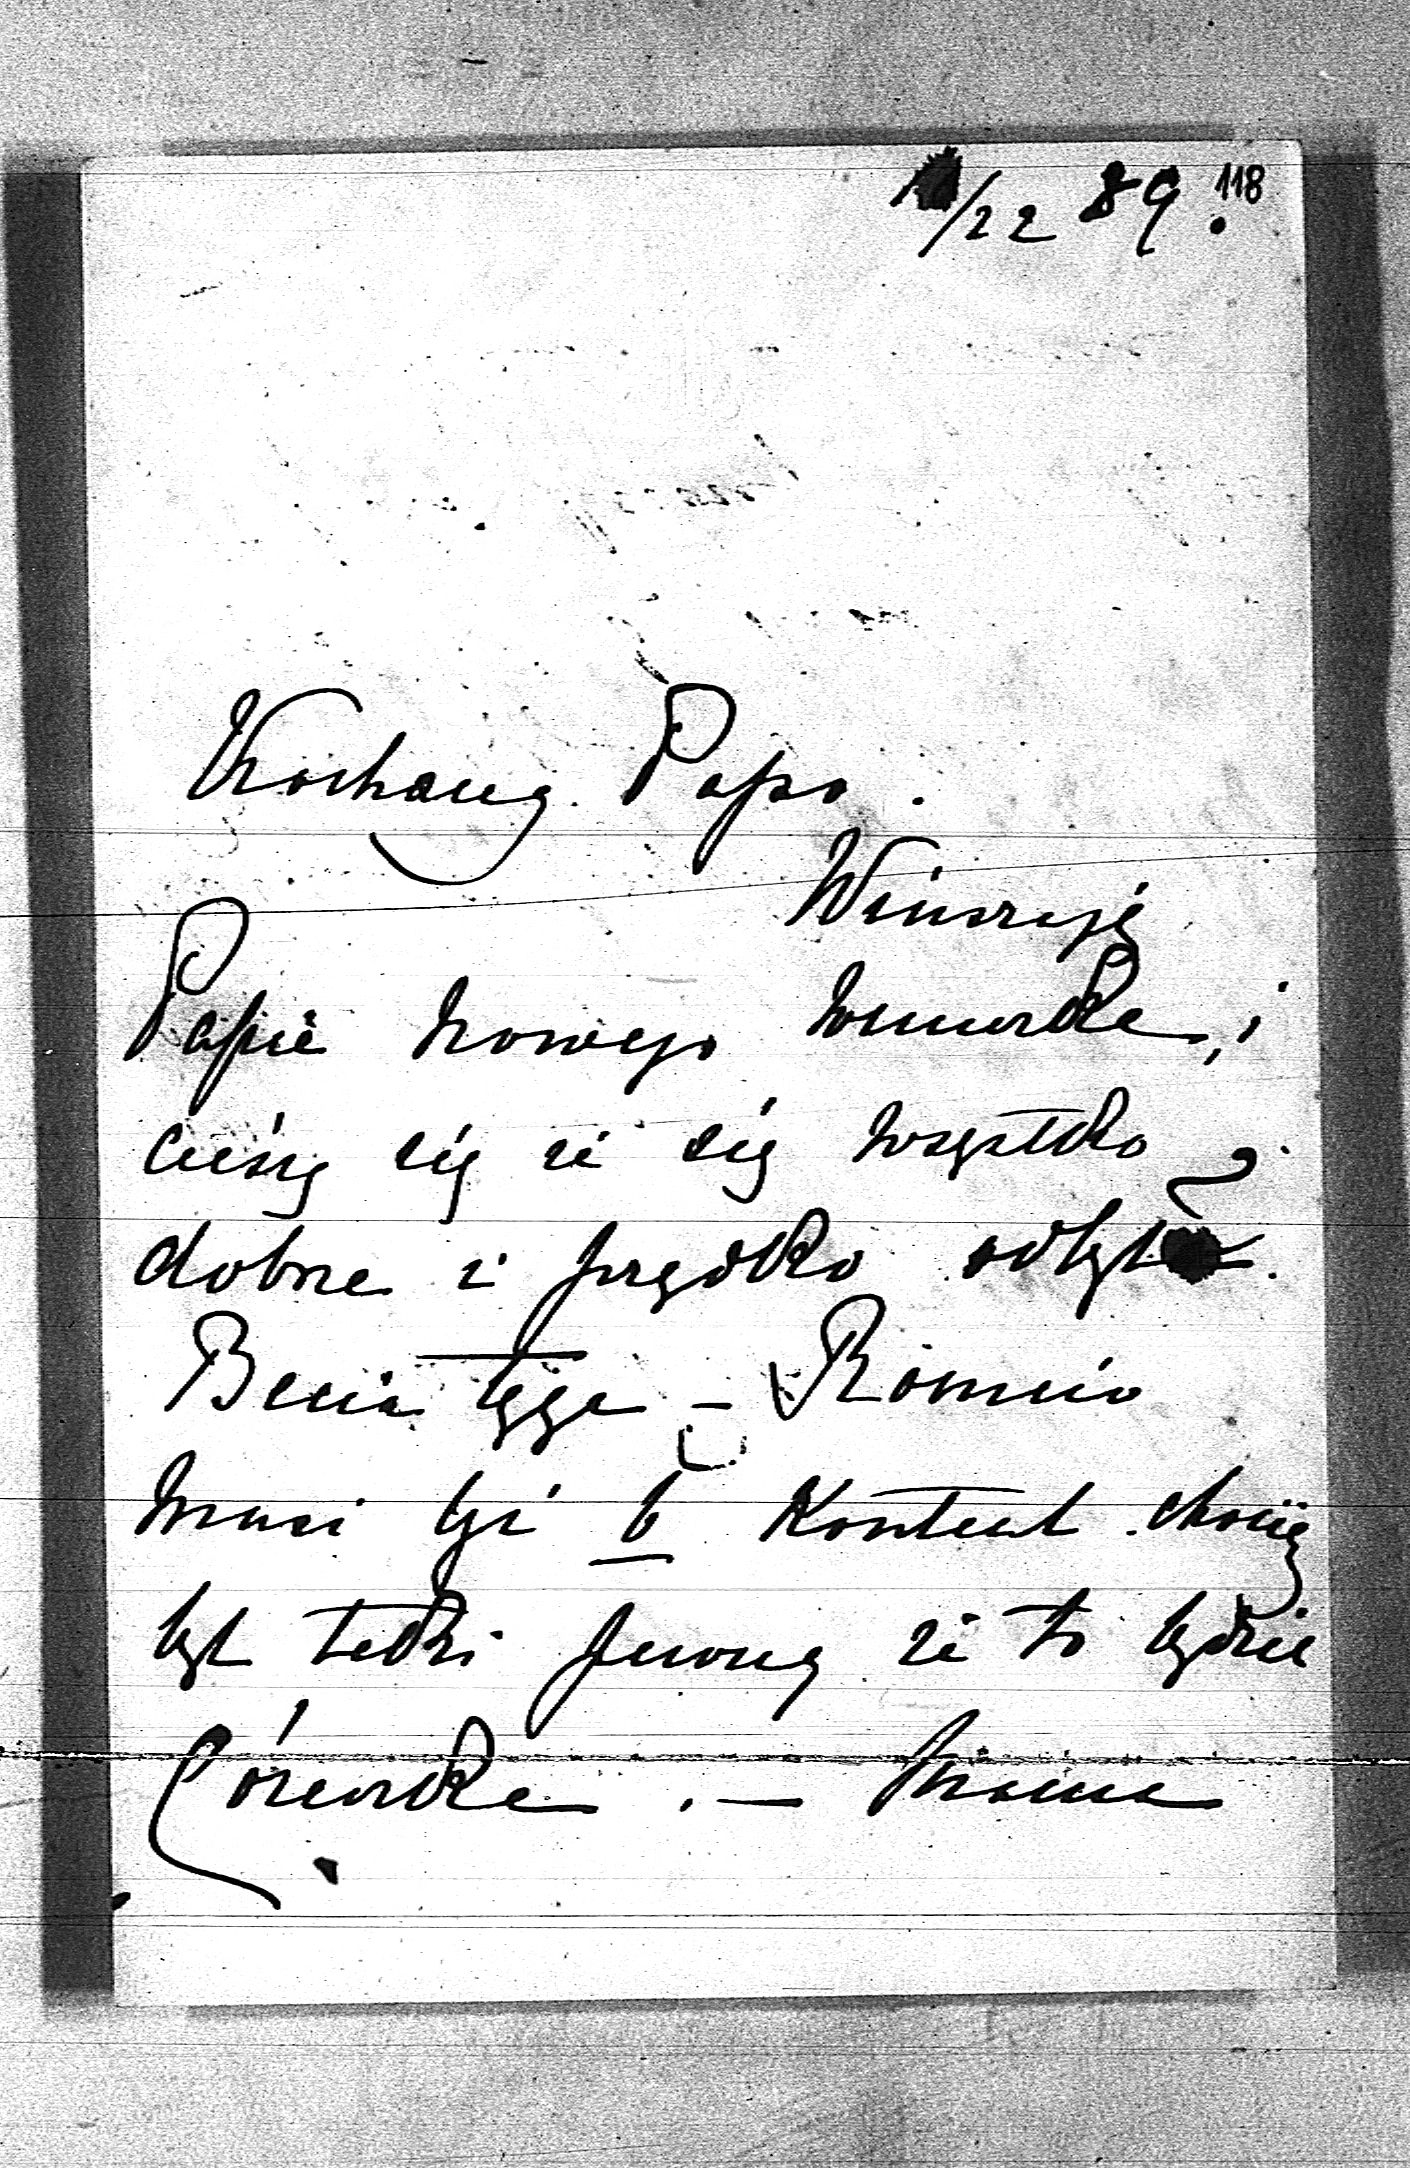 /22 89. 118
Kochany Papo.
Winszuję
Papie nowego wnuczka, i
cieszę się że się wszystko
dobrze i prędko odbyło.
tęga – Romcio
musi być b kontent chociaż
był także pewny że to będzie
Córeczka. —